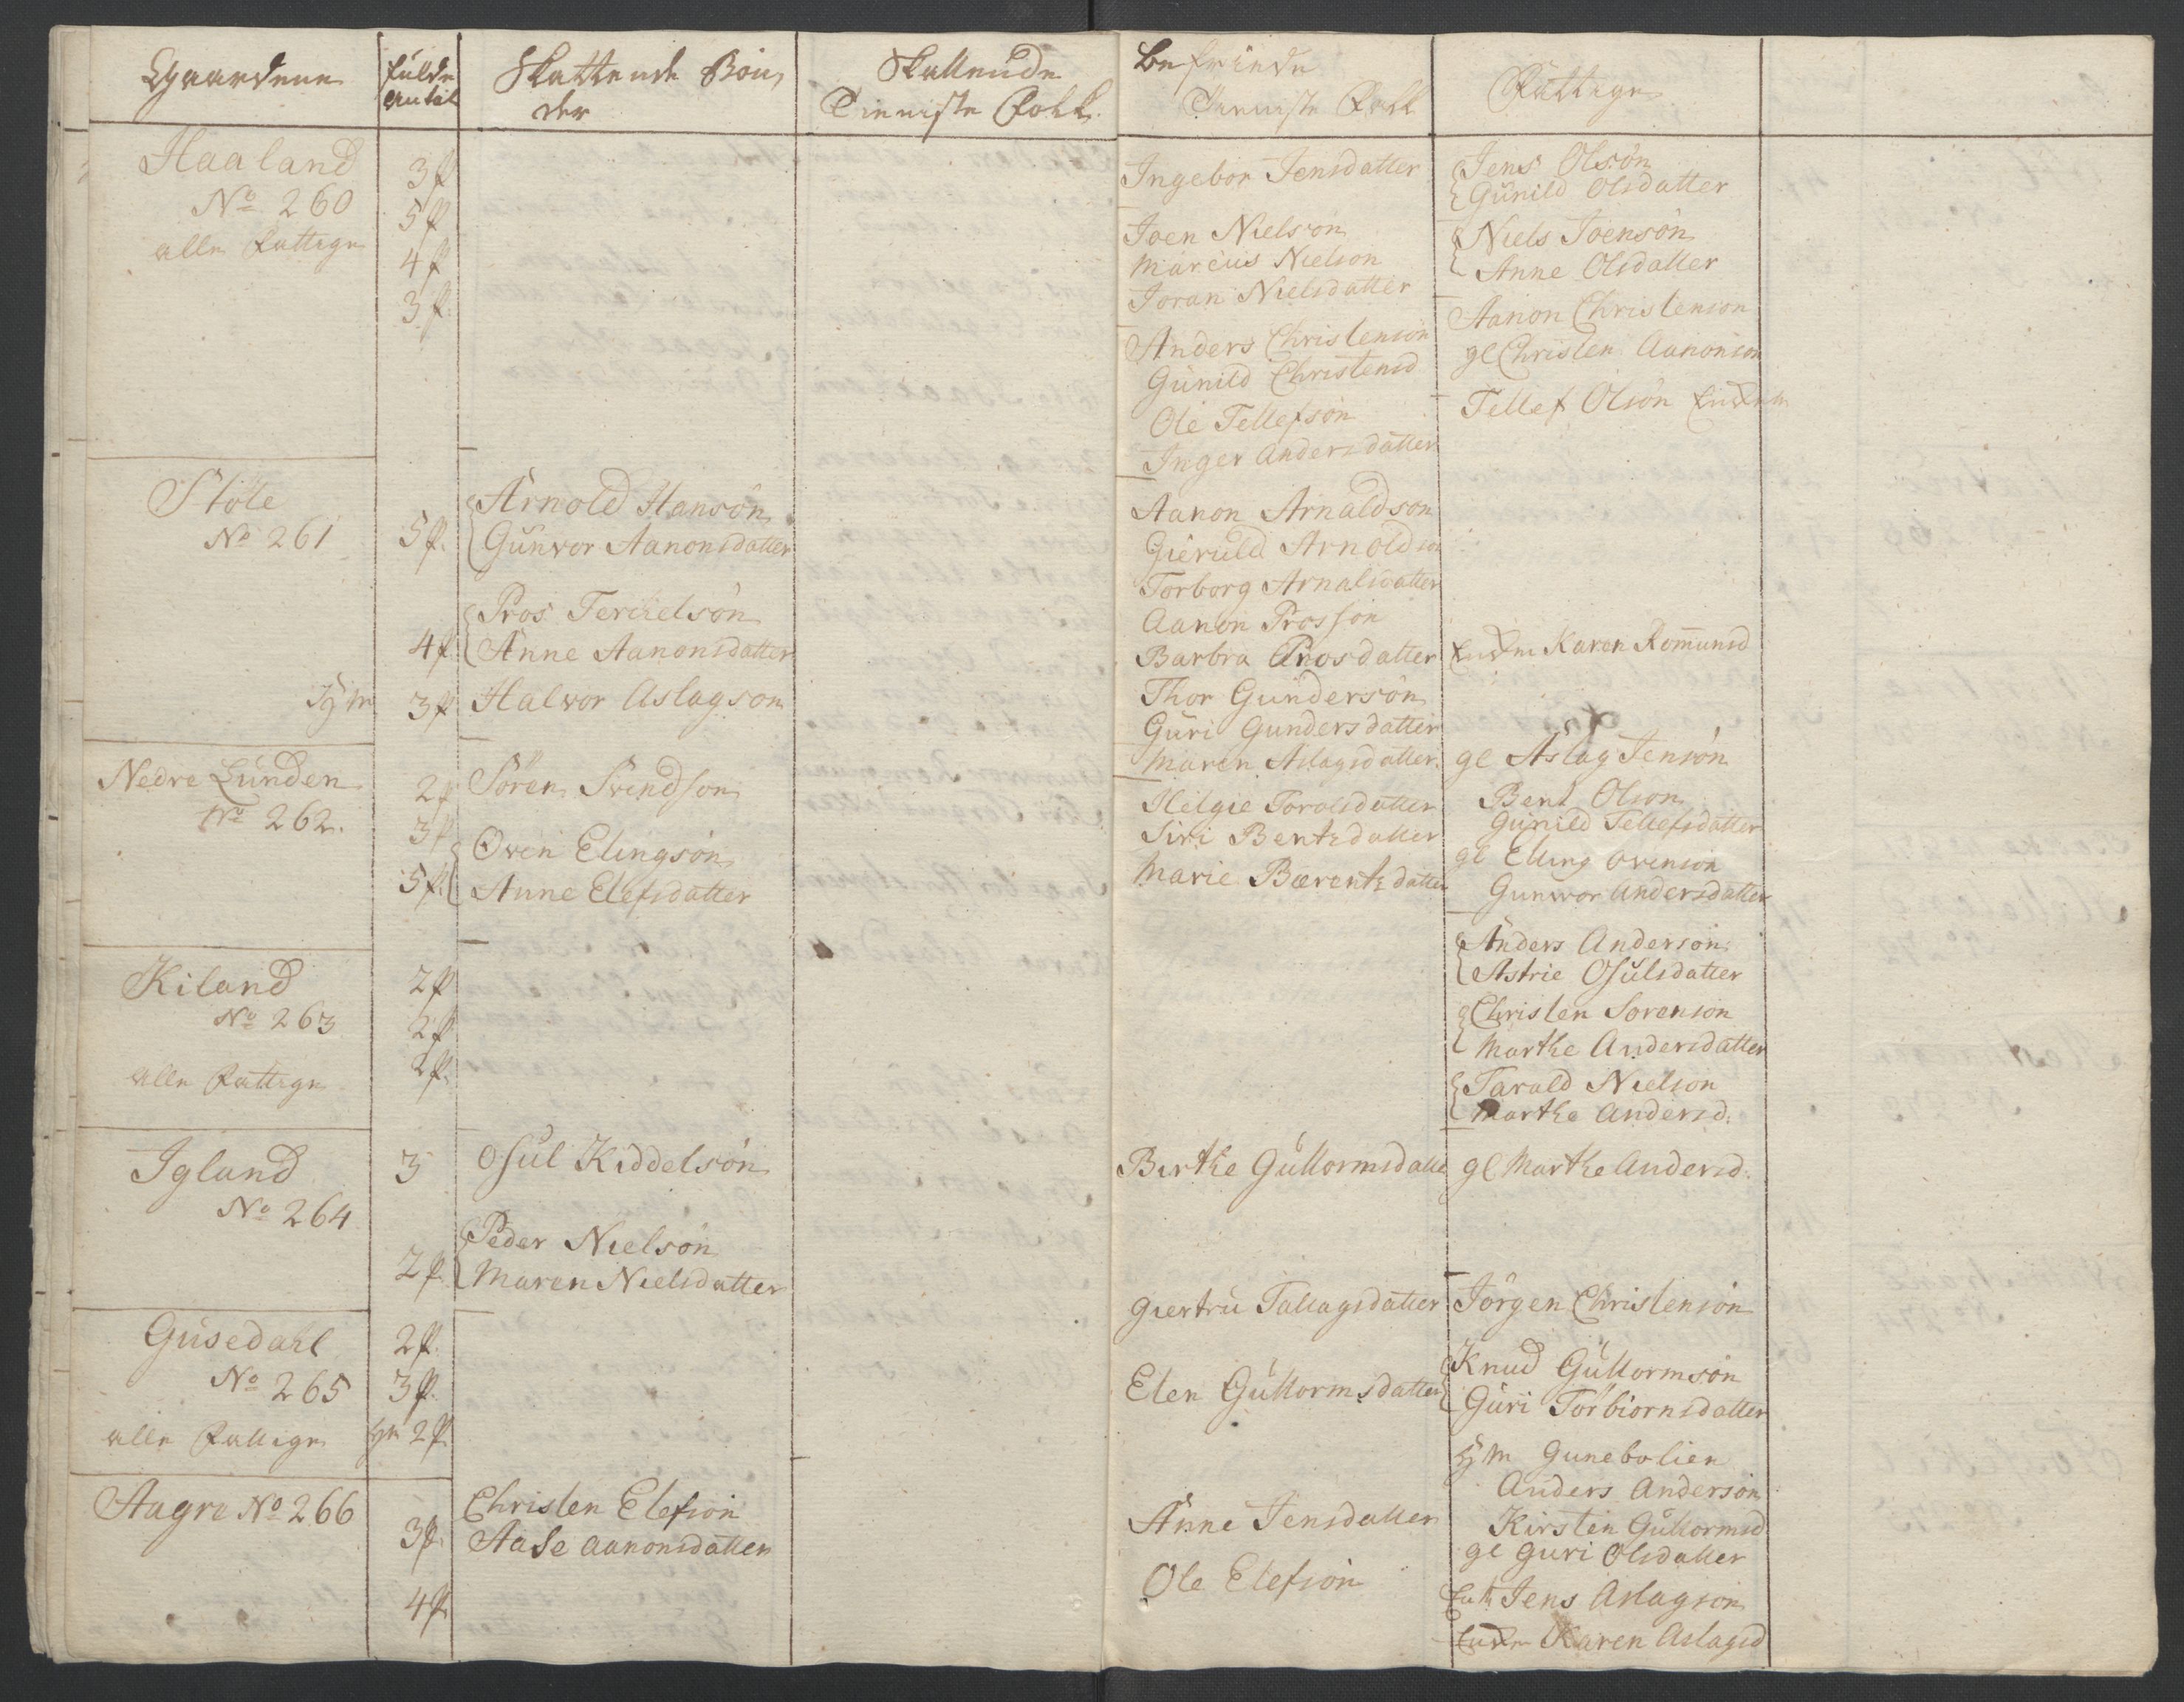 Gaardene
fulde Antal
Skattende Bøn,
der
Skattende
Tienniste Folk.
Befriede
Tienniste Folk
Fattige
Haaland
No 260
alle Fattige
3 f
5 f
4 f
3 f.
Ingebor Jensdatter
Joen Nielsøn
Marcus Nielson
Joran Nielsdatter
Anders Christensøn
Gunild Christensd
Ole Tellefsøn
Inger Andersdatter
Jens Olsøn
Gunild Olsdatter
Niels Joensøn
Anne Olsdatter
Aanon Christenson
gl Christen Aanonson
Tellef Olsøn
Støle
No 261
5 f.
Arnold Hansøn
Gunvor Aanonsdatter
4 f.
Pros Terkielsøn
Anne Aanonsdatter
3 f
Halvor Aslagson
Aanon Arnaldson
Gieruld Arnoldson
Torborg Arnalsdatter
Aanon Prosson
Barbra Prosdatter
Thor Gundersøn
Guri Gundersdatter
Maren Aslagsdatter.
Karen Romunsd
gl Aslag Jensøn
Nedre Lunden
No 262.
2 f
3 f
5 f.
Søren Svendson
Oven Elingsøn
Anne Elefsdatter
Helgie Torolsdatter
Siri Bentsdatter
Marie Bærentsdatter
Bent Olson
Gunild Tellefsdatter
gl Elling Ovenson
Gunvor Andersdatter
Kiland
No 263
alle Fattige
2 f
2 f
2 f.
Anders Andersøn
Astrie Osulsdatter
Christen Sorenson
Marthe Andersdatter
Tarald Nielson
Marthe Andersd.
Igland
No 264
3
Osul Kiddelsøn
2 f.
Peder Nielsøn
Maren Nielsdatter
Birthe Guttormsdatt
gl Marthe Andersd.
Gusedahl
No 265
alle Fattige
2 f.
3 f.
2 f.
Giertru Tallagsdatter
Elen Guttormsdatter
Jørgen Christensøn
Knud Guttormsøn
Guri Torbiornsdatter
Gunebolien
Anders Andersøn
Kirsten Guttormsd
gl Guri Olsdatter
Aagre No 266
3 f.
4 f.
Christen Elefsøn
Aase Aanonsdatter
Anne Jensdatter
Ole Elefsøn
Jens Aslagsøn
Karen Aslagsd